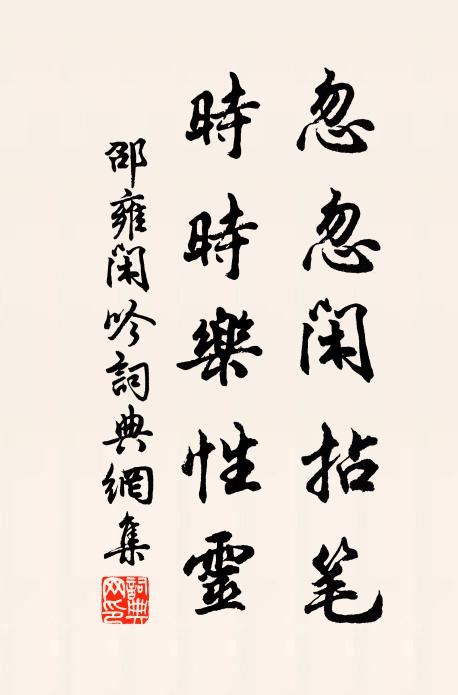 忽忽闲拈笔
時時樂性靈
邵雍闲吟詞典網集
詞典网印